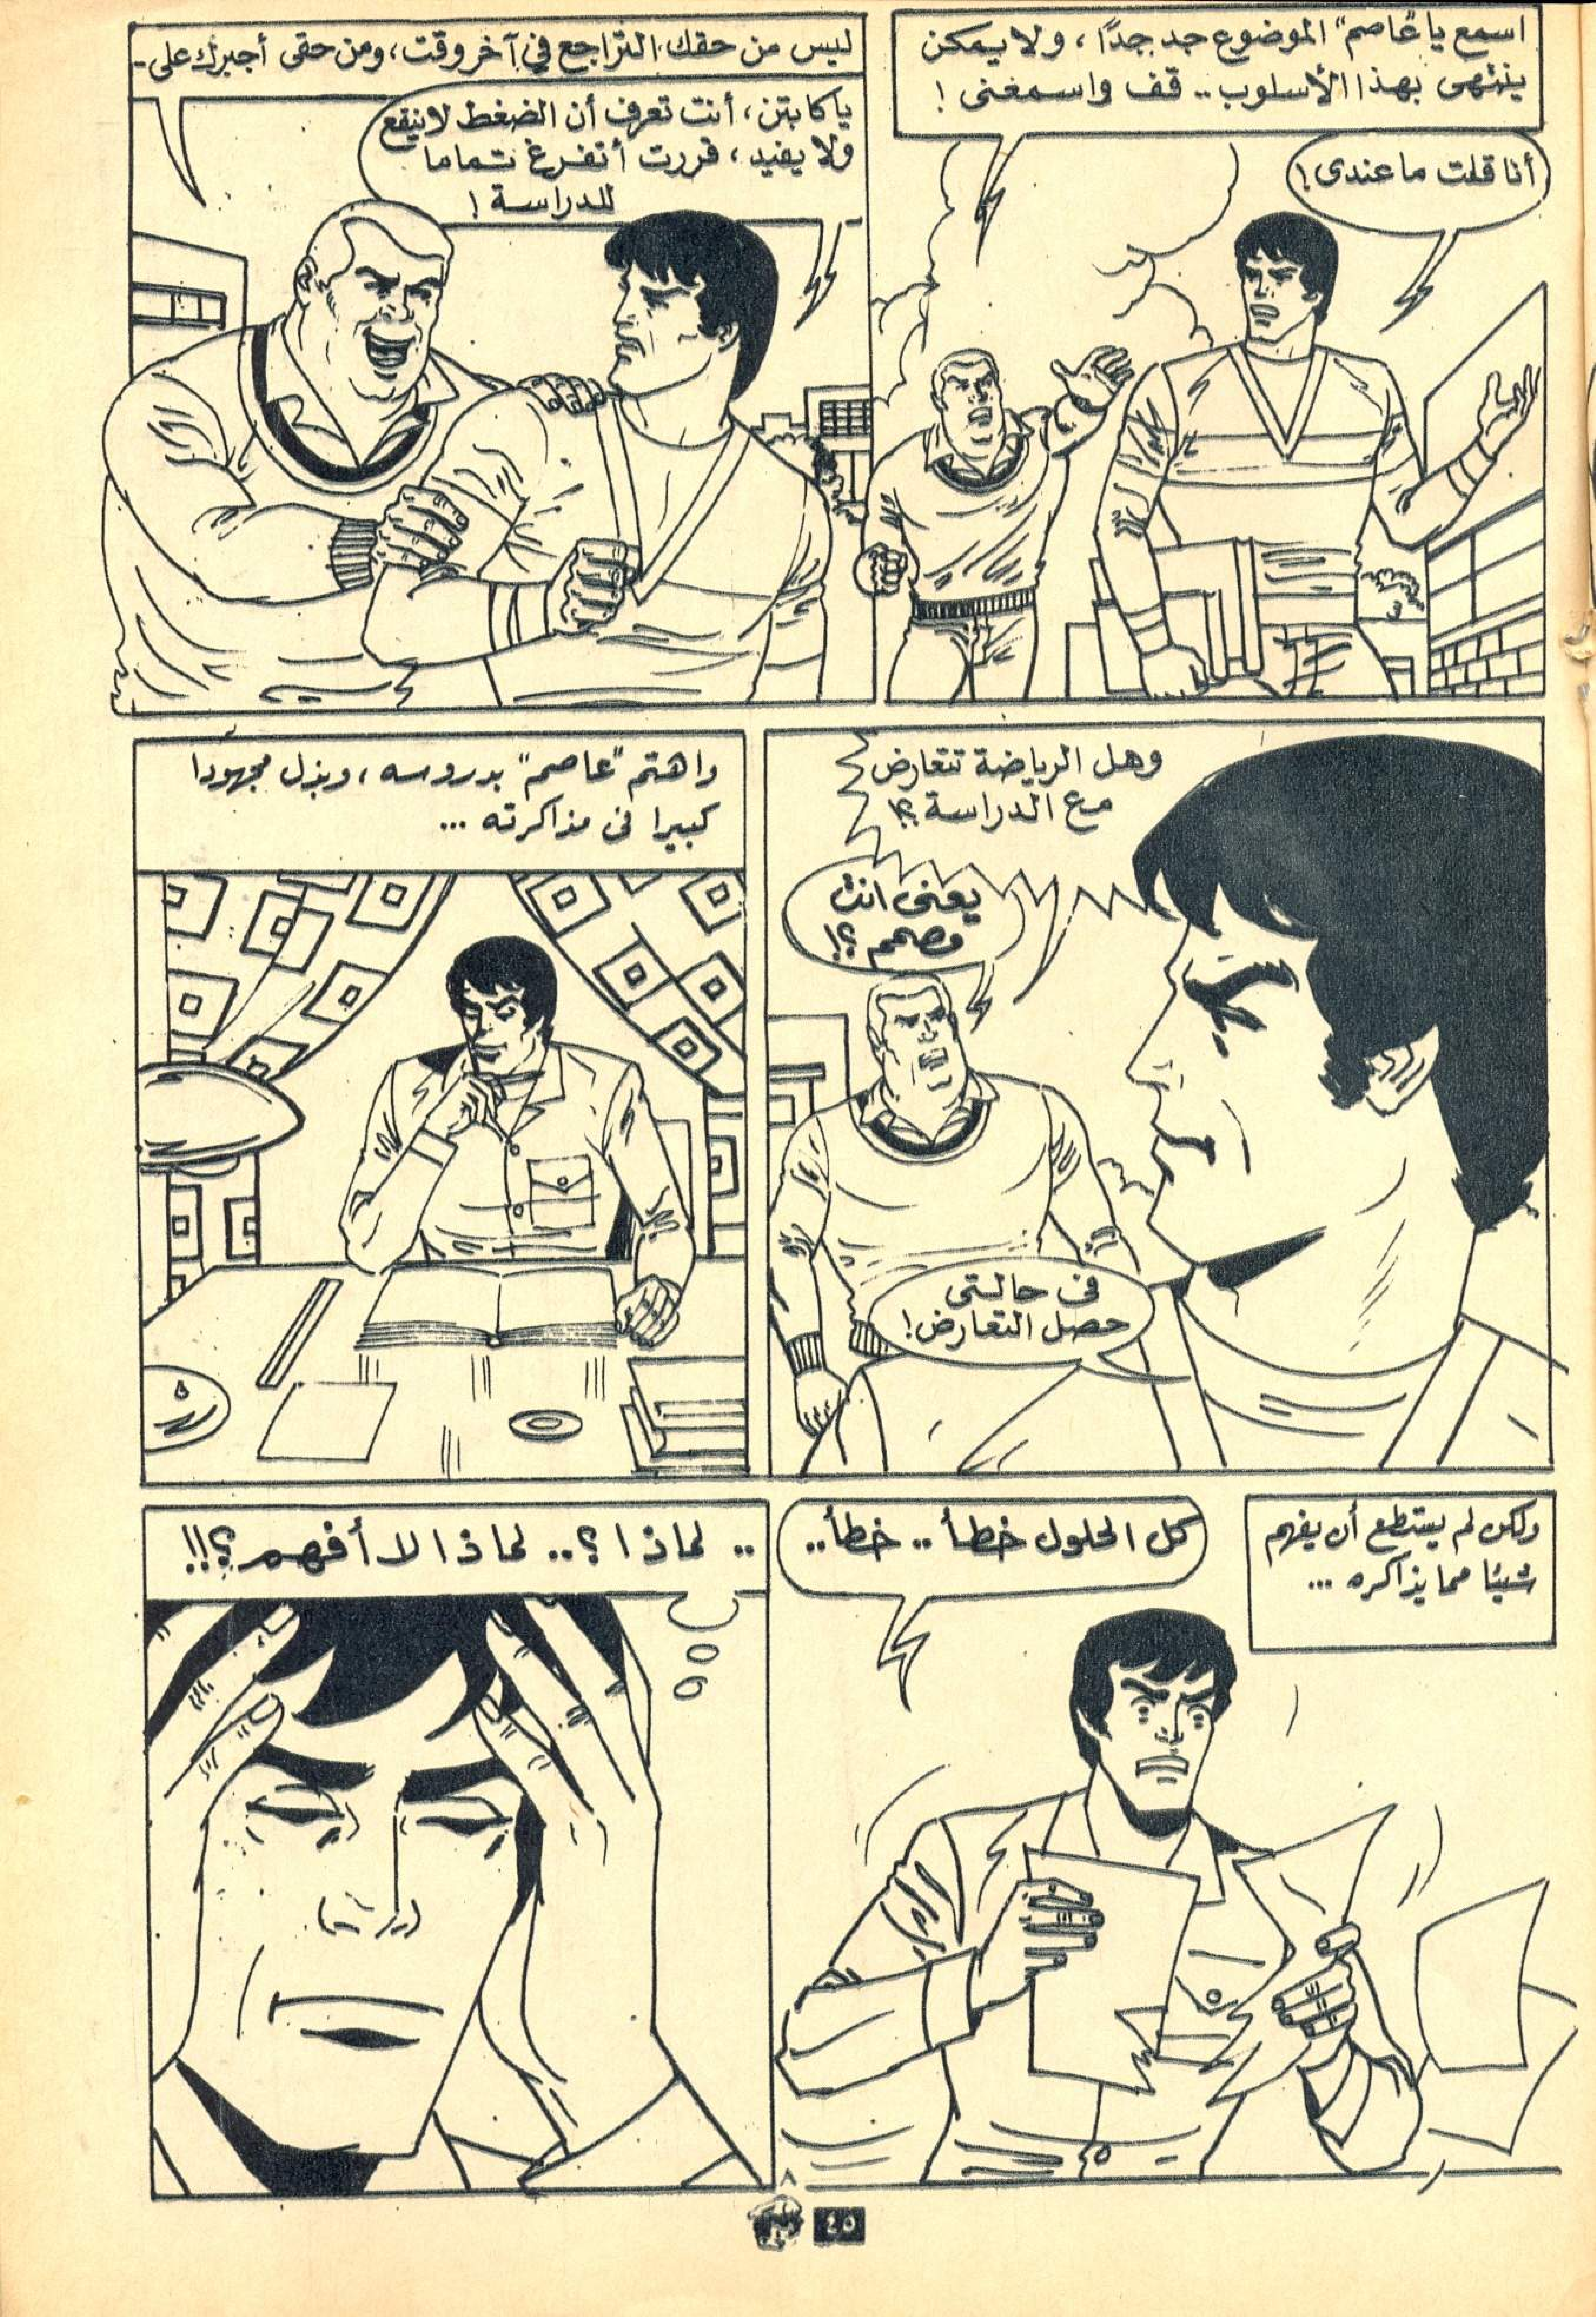 اسمع يا "عاصم" الموضوع جد جدًا، ولا يمكن
ينتهى بهذا الأسلوب.. قف واسمعنى !
أنا قلت ما عندى !
ليس من حقك التراجع في آخر وقت، ومن حقى أجبرك على -
يا كابتن، أنت تعرف أن الضغط لا ينفع
ولا يفيد، قررت أتفرغ تماما
للدراسة !
وهل الرياضة تتعارض
مع الدراسة ؟!
يعنى انت
مصمم ؟!
فى حالتى
حصل التعارض !
واهتم "عاصم" بدروسه، وبذل مجهودا
كبيرا فى مذاكرته ...
ولكن لم يستطع أن يفهم
شيئا مما يذاكره ...
كل الحلول خطأ .. خطأ ..
.. لماذا ؟.. لماذا لا أفهم ؟!!
٨
٤٥